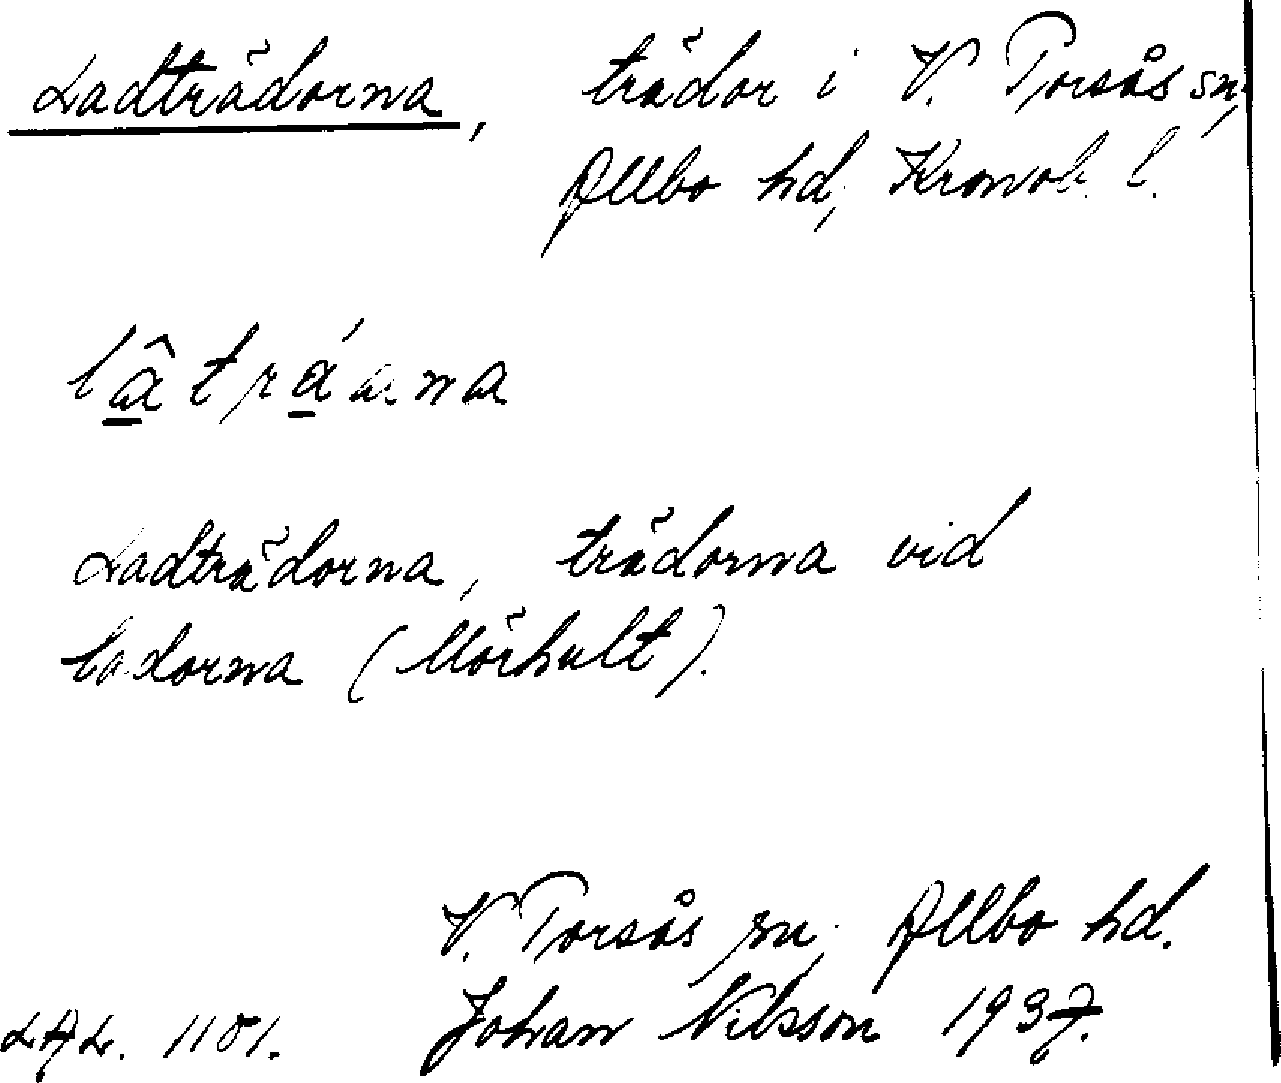 Ladträdorna, trädor i V. Torsås sn,
Allbo hd, Kronob. l.
lâtráarna
Ladträdorna, trädorna vid
ladorna (Mörhult).
V. Torsås sn, Allbo hd.
LAL. 1101. Johan Nilsson 1937.